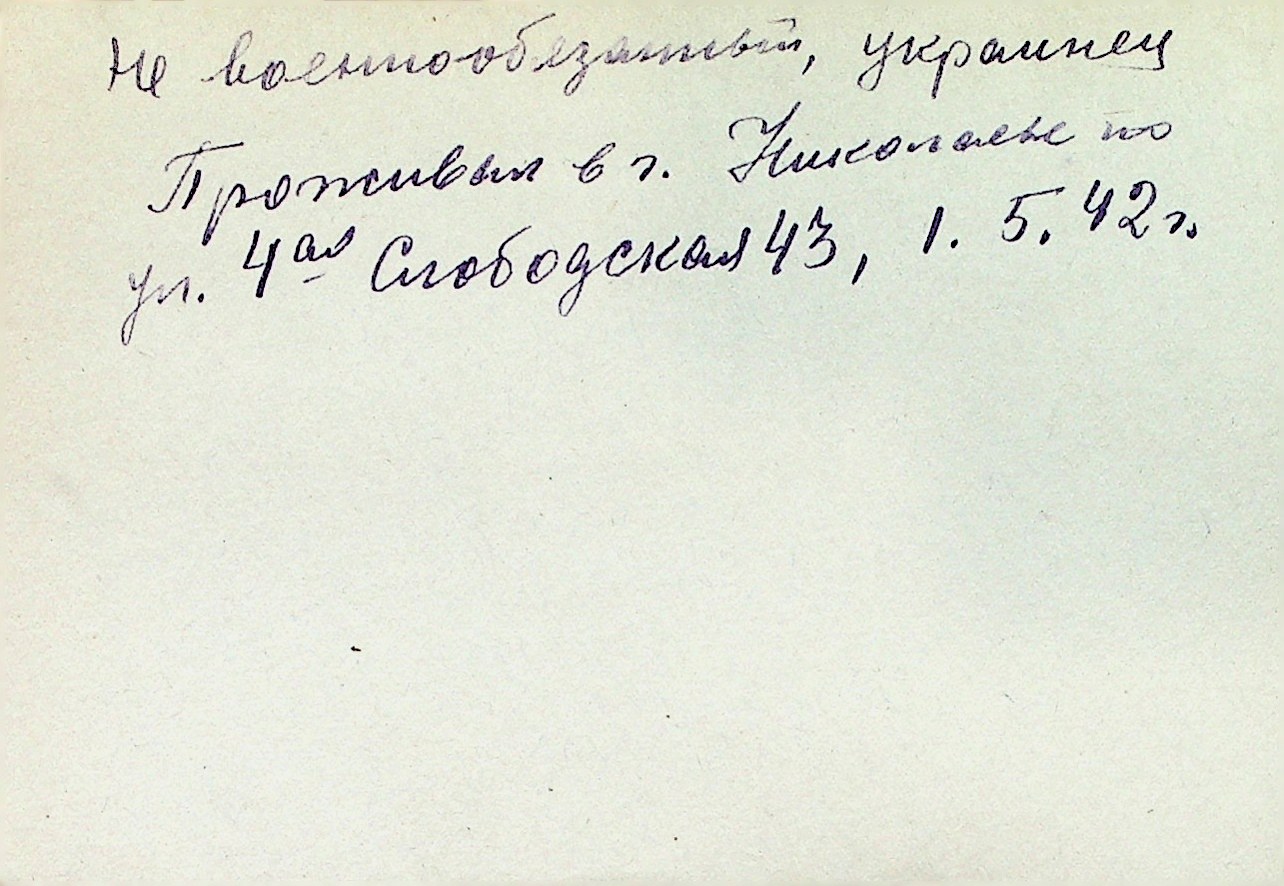 Не военнообязаный, украинец
Проживал в г. Николаеве по
ул. 4ая Слободская 43, 1. 5. 42 г.